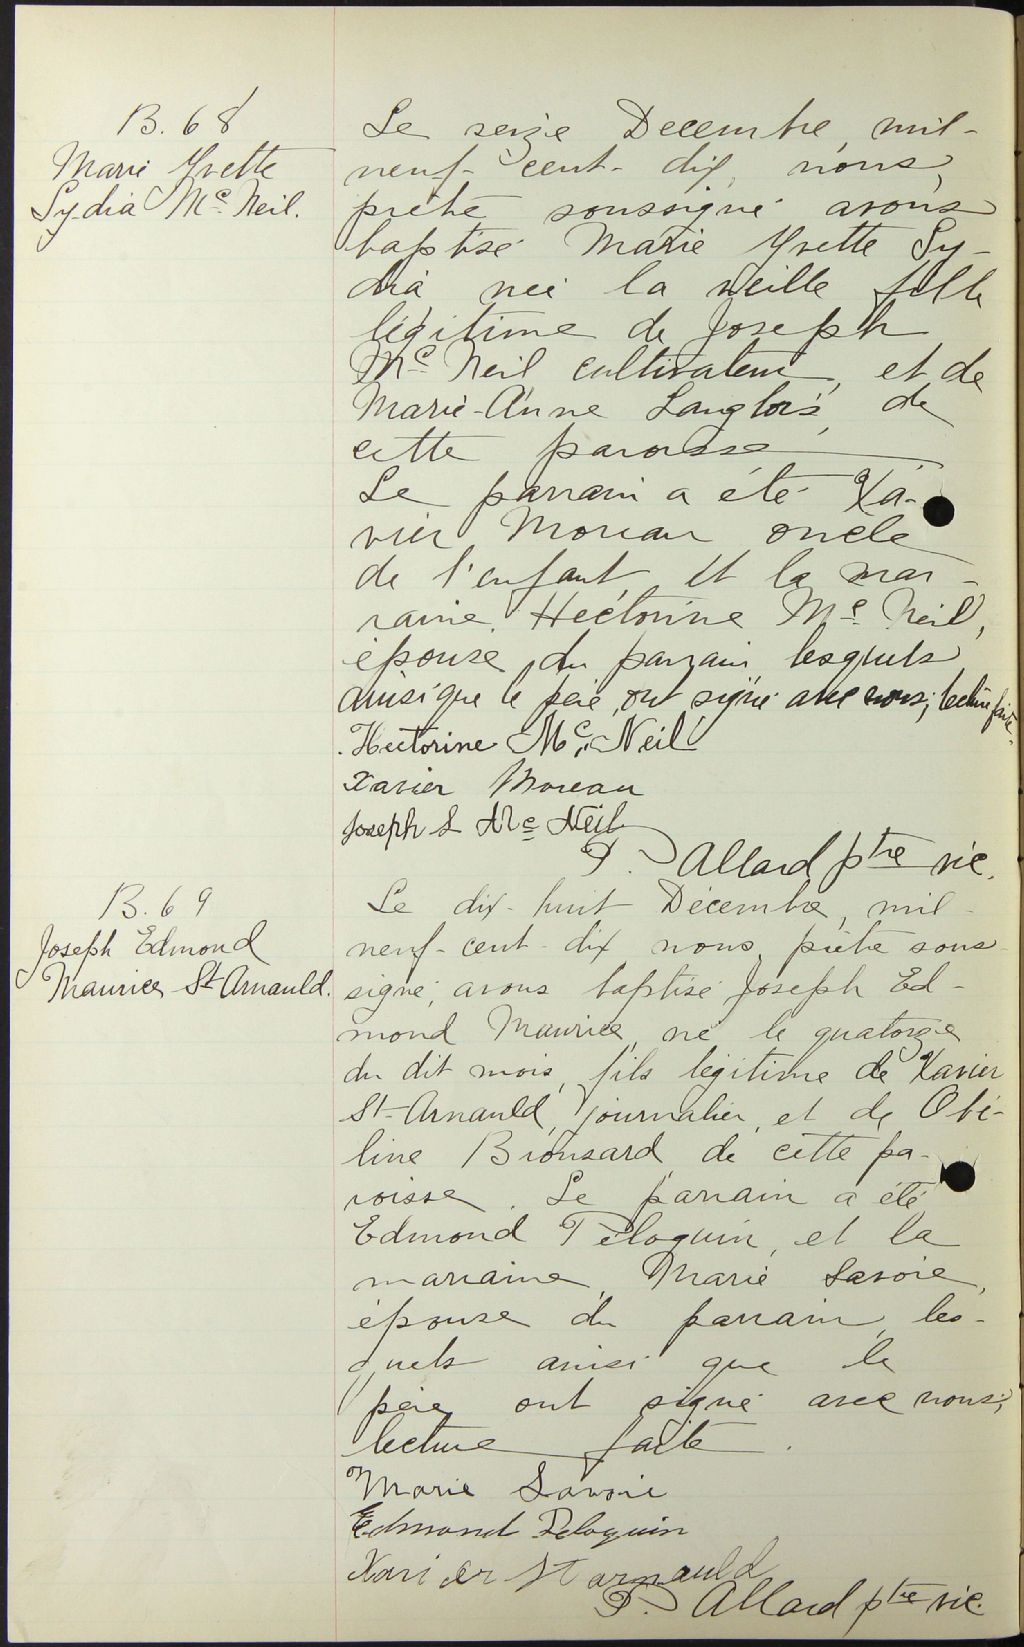 B. 68
Marie Yvette
Sydia Mc Neil.
Le seize Decembre, mil-
neuf-cent-dix, nous,
prêtre soussigné avons
baptisé Marie Yvette Sy-
dia née la veille fille
légitime de Joseph
Mc Neil cultivateur, et de
Marie-Anne Langlois, de
cette paroisse
Le parrain a été Xa-
vier Moreau oncle
de l'enfant et la mar-
raine Hectorine Mc Neil,
épouse du parrain lesquels
ainsi que le père, ont signé avec nous; lecture faite.
Hectorine Mc Neil
Xavier Moreau
Joseph S Mc Neil
P. Allard ptre vic.
B. 69
Joseph Edmond
Maurice St-Arnauld.
Le dix-huit Décembre, mil-
neuf-cent-dix nous, prêtre sous-
signé, avons baptisé Joseph Ed-
mond Maurice, né le quatorze
du dit mois, fils légitime de Xavier
St-Arnauld, journalier, et de Obé-
line Bronsard, de cette pa-
roisse. Le parrain a été
Edmond Péloquin, et la
marraine, Marie Savoie,
épouse du parrain, les-
quels ainsi que le
père ont signé avec nous;
lecture faite.
Marie Savoie
Edmond Peloquin
Xavier St arnauld
P. Allard ptre vic.